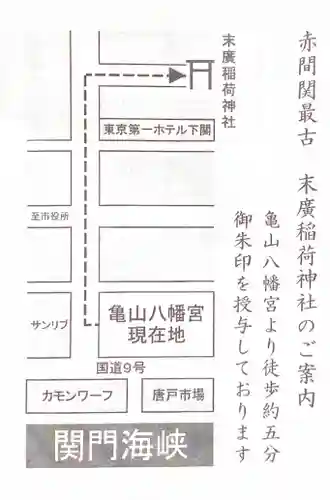 赤間関最古　末廣稲荷神社のご案内
亀山八幡宮より徒歩約五分
御朱印を授与しております
末廣稲荷神社
東京第一ホテル下関
至市役所
サンリブ
亀山八幡宮
現在地
国道9号
カモンワーフ
唐戸市場
関門海峡